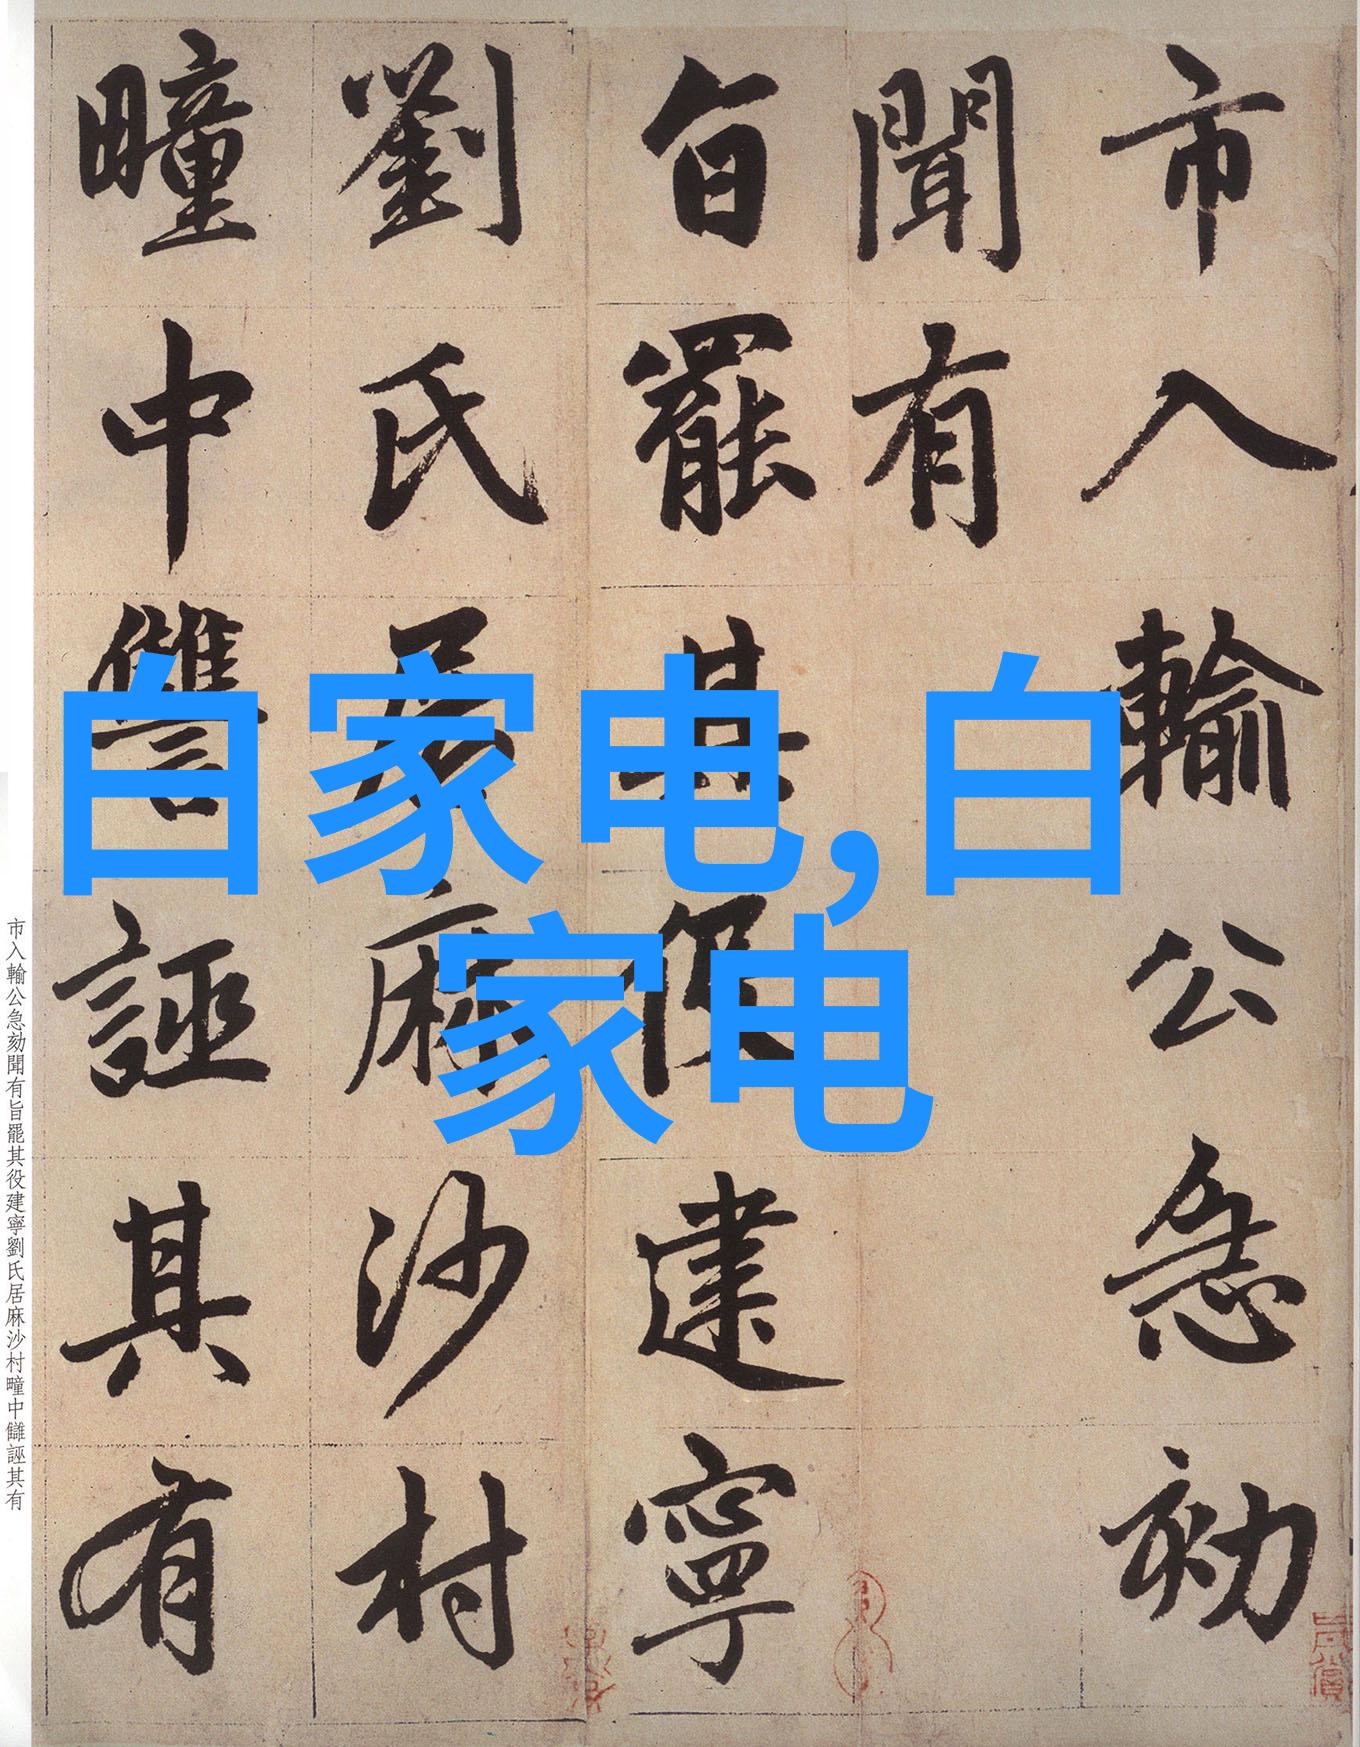 市入輸公急劾
聞有
旨罷其役建寧
劉氏居麻沙村
疃中讎誣其有
自家电,白
家电
市入輸公急劾聞有旨罷其役建寧劉氏居麻沙村疃中讎誣其有